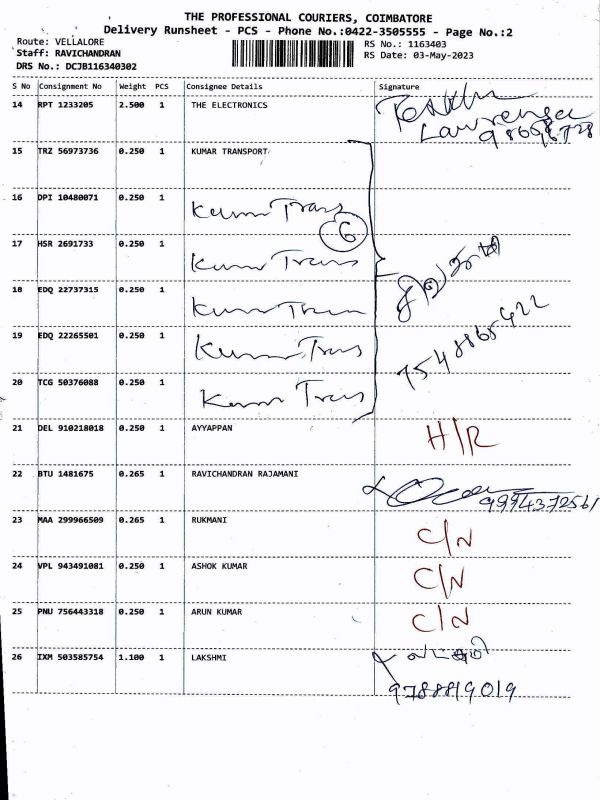 THE PROFESSIONAL COURIERS, COIMBATORE
Delivery Runsheet - PCS - Phone No.:0422-3505555 - Page No.:2
Route: VELLALORE
Staff: RAVICHANDRAN
DRS No.: DCJB116340302
RS No.: 1163403
RS Date: 03-May-2023
S No Consignment No Weight PCS Consignee Details Signature
14 RPT 1233205 2.500 1 THE ELECTRONICS
Lawrence
15 TRZ 56973736 0.250 1 KUMAR TRANSPORT
16 DPI 10480071 0.250 1 Kumar Trans
6
17 HSR 2691733 0.250 1 Kumar Trans
18 EDQ 22737315 0.250 1 Kumar Trans
19 EDQ 22265501 0.250 1 Kumar Trans
7548865422
20 TCG 50376088 0.250 1 Kumar Trans
21 DEL 910218018 0.250 1 AYYAPPAN H/R
22 BTU 1481675 0.265 1 RAVICHANDRAN RAJAMANI
9994372561
23 MAA 299966509 0.265 1 RUKMANI C/N
24 VPL 943491081 0.250 1 ASHOK KUMAR C/N
25 PNU 756443318 0.250 1 ARUN KUMAR C/N
26 IXM 503585754 1.100 1 LAKSHMI லட்சுமி
9788819019